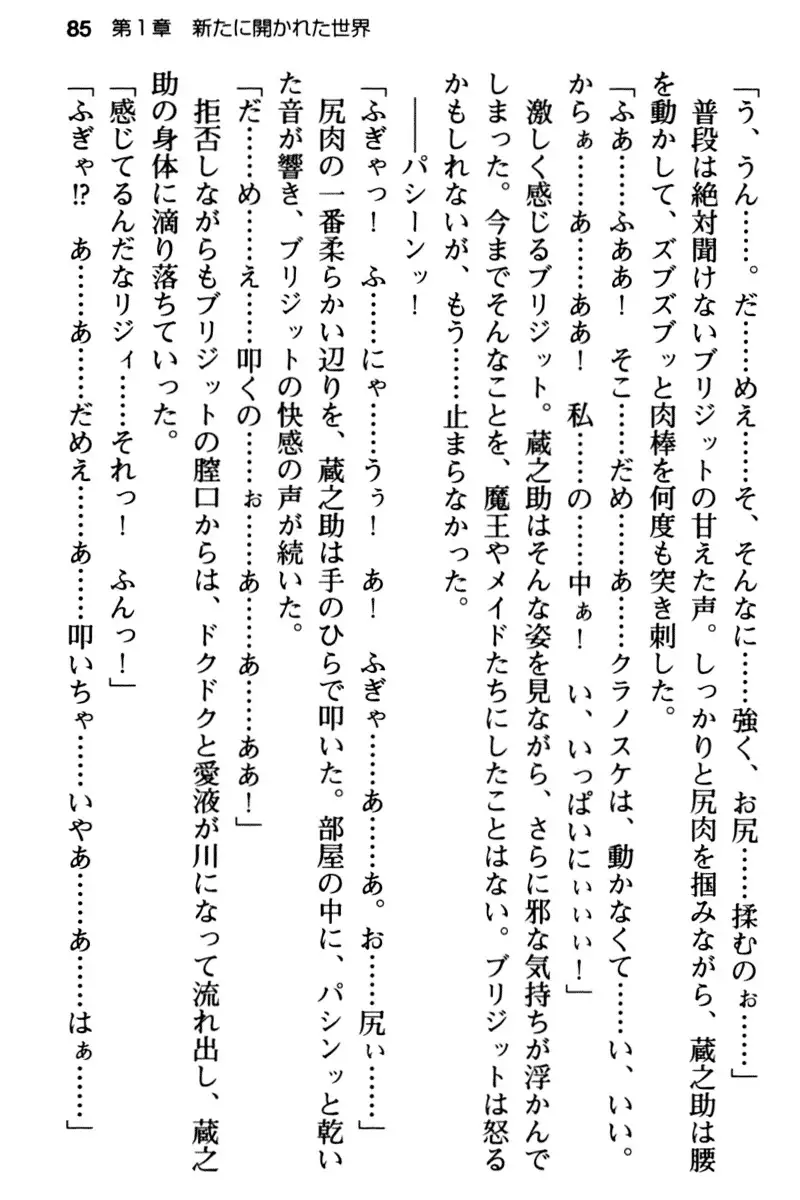 85 第1章 新たに開かれた世界
「う、うん……。だ……めえ……そ、そんなに……強く、お尻……揉むのぉ……」
普段は絶対聞けないブリジットの甘えた声。しっかりと尻肉を掴みながら、蔵之助は腰
を動かして、ズブズブッと肉棒を何度も突き刺した。
「ふあ……ふああ！　そこ……だめ……あ……クラノスケは、動かなくて……い、いい。
からぁ……あ……ああ！　私……の……中ぁ！　い、いっぱいにぃぃぃ！」
激しく感じるブリジット。蔵之助はそんな姿を見ながら、さらに邪な気持ちが浮かんで
しまった。今までそんなことを、魔王やメイドたちにしたことはない。ブリジットは怒る
かもしれないが、もう……止まらなかった。
――パシーンッ！
「ふぎゃっ！　ふ……にゃ……うぅ！　あ！　ふぎゃ……あ……あ。お……尻ぃ……」
尻肉の一番柔らかい辺りを、蔵之助は手のひらで叩いた。部屋の中に、パシンッと乾い
た音が響き、ブリジットの快感の声が続いた。
「だ……め……え……叩くの……ぉ……あ……あ……ああ！」
拒否しながらもブリジットの膣口からは、ドクドクと愛液が川になって流れ出し、蔵之
助の身体に滴り落ちていった。
「感じてるんだなリジィ……それっ！　ふんっ！」
「ふぎゃ!?　あ……あ……だめえ……あ……叩いちゃ……いやあ……あ……はぁ……」